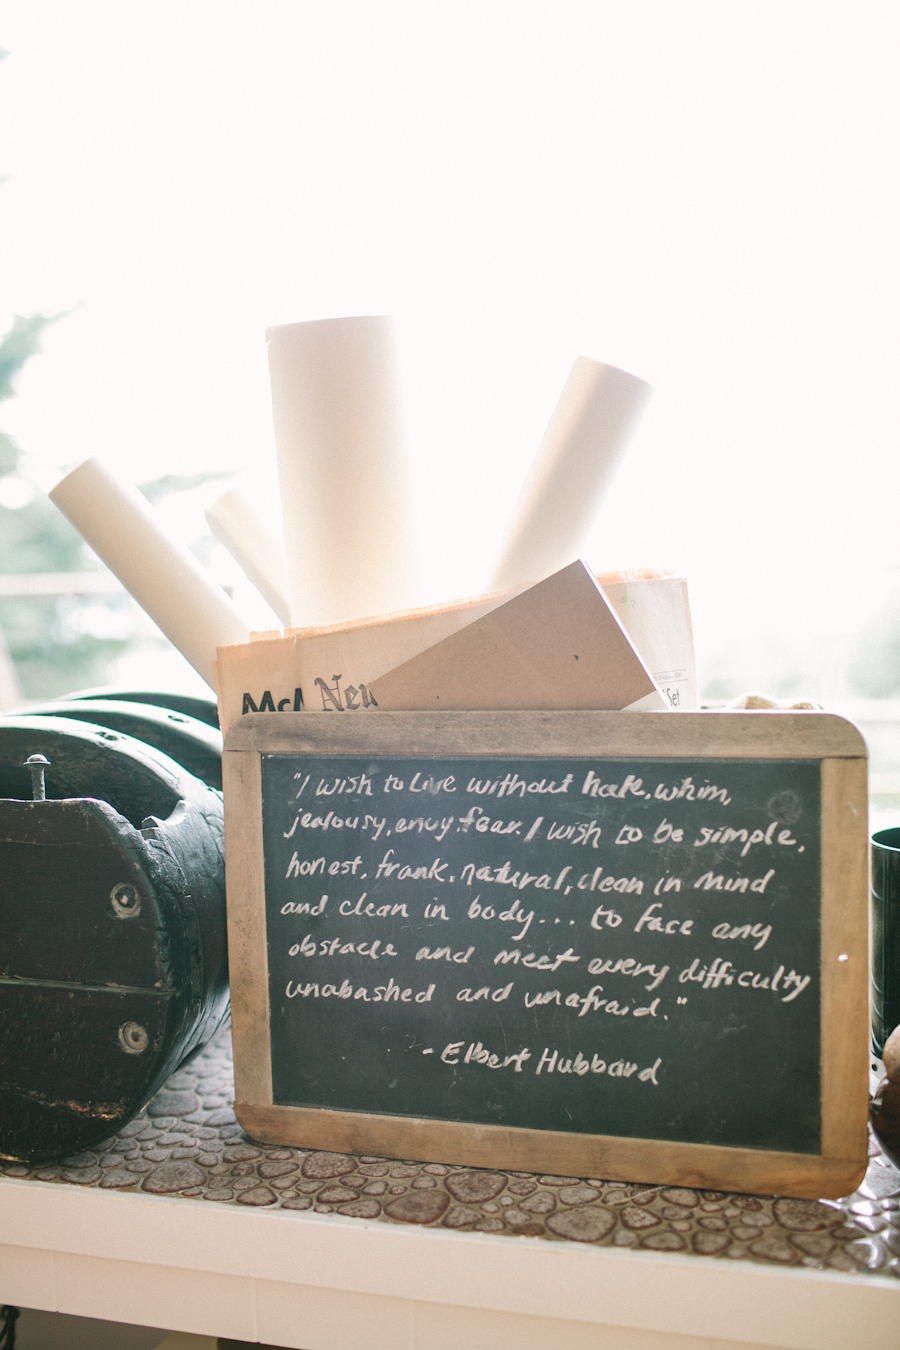 McM
New
Set
"I wish to Live without hate, whim,
jealousy, envy, fear. I wish to be simple,
honest, frank, natural, clean in mind
and clean in body... to face any
obstacle and meet every difficulty
unabashed and unafraid."
- Elbert Hubbard